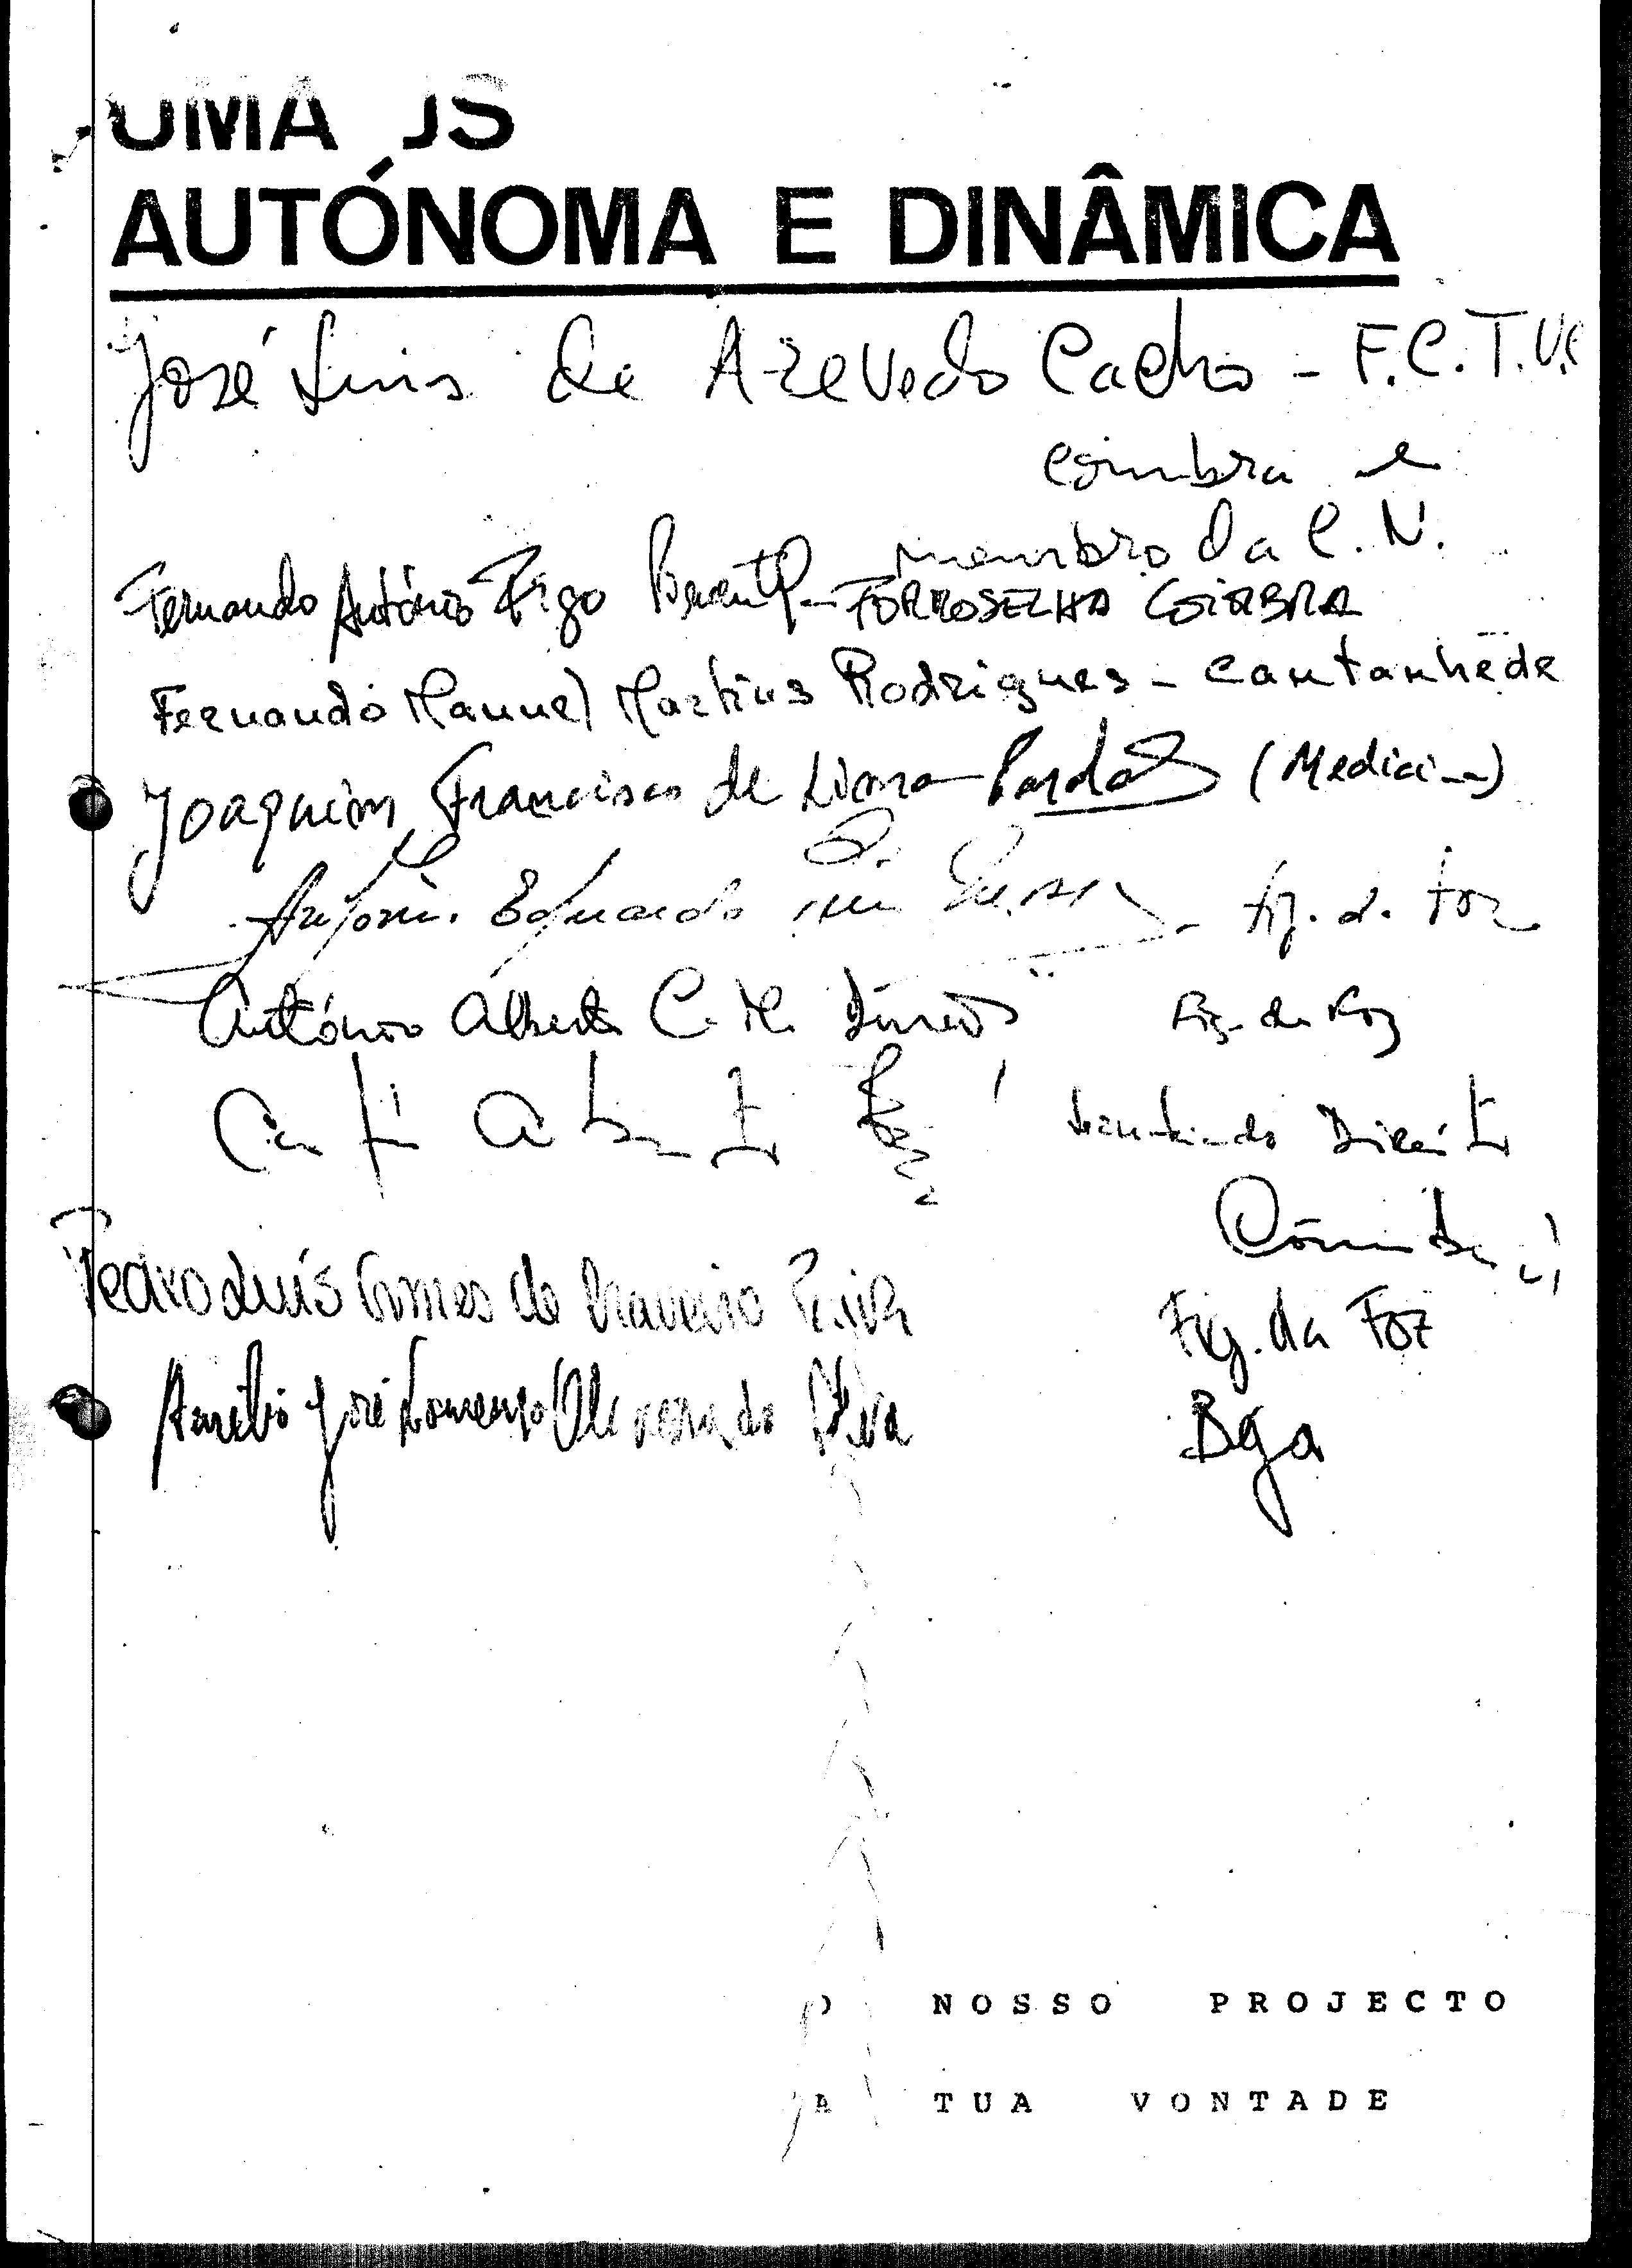 UMA JS
AUTÓNOMA E DINÂMICA
José Luis de Azevedo Cacho - F.C.T.U.C
Coimbra e
membro da C.N.
Fernando António Figo - FORROSELHA COIMBRA
Fernando Manuel Martins Rodrigues - Cantanhede
Joaquim Francisco de Lima Pardal (Medicina)
António Eduardo - Fig. d. Foz
António Alberto C. M. Fig. da Foz
Direito
Coimbra
Pedro Luís Gomes de Fig. da Foz
Aurélio José Lourenço da Silva Bga
O NOSSO PROJECTO
A TUA VONTADE